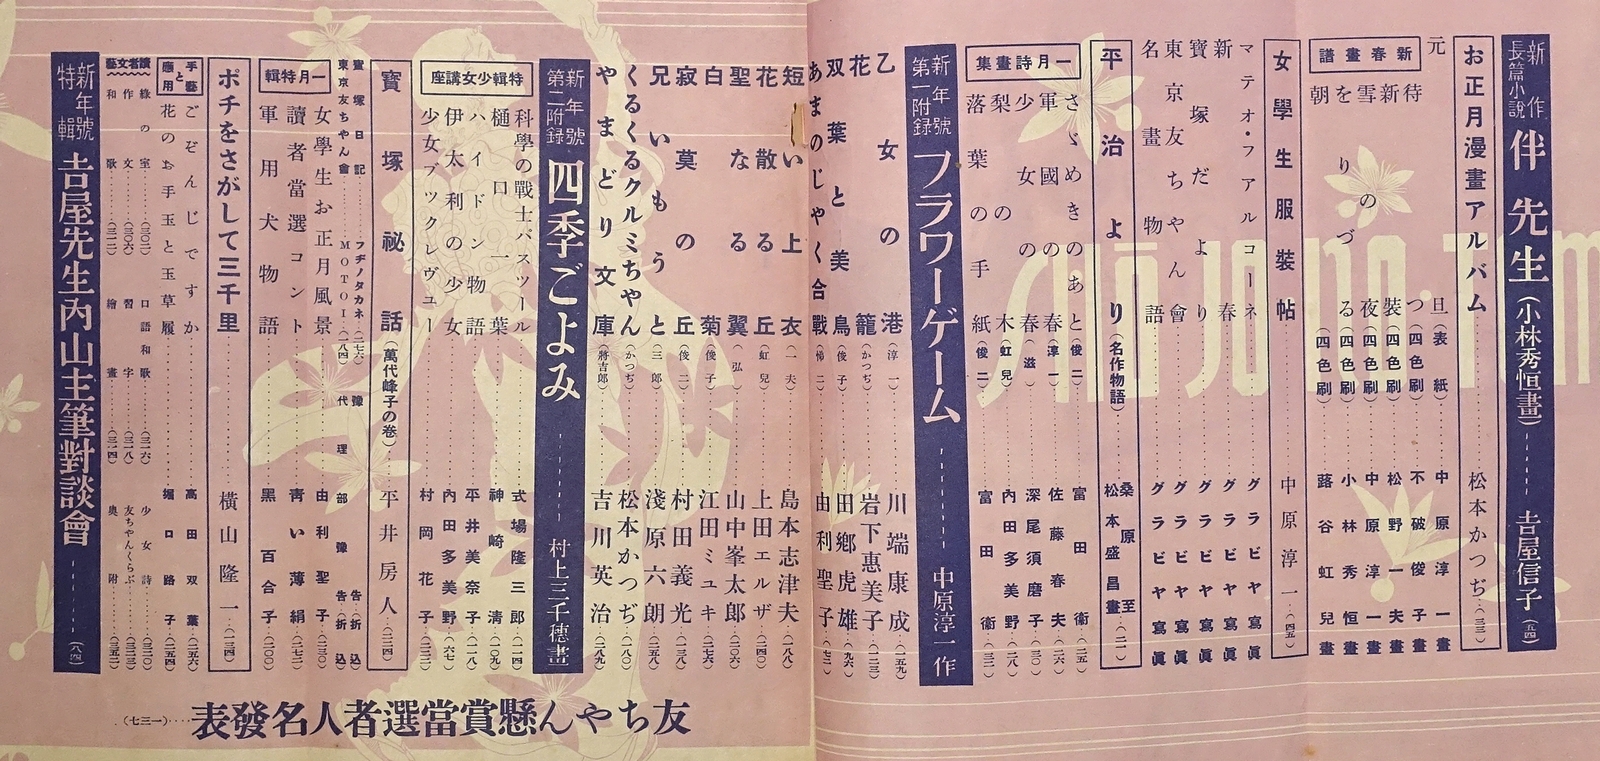 新作長篇小說 伴先生（小林秀恒畫） 吉屋信子（五四）
お正月漫畫アルバム 松本かつぢ（三三）
新春畫譜
元旦（表紙） 中原淳一畫
待つ（四色刷） 不破俊子畫
新裝（四色刷） 松野一夫畫
雪の夜（四色刷） 中原淳一畫
をりづる（四色刷） 小林秀恒畫
朝（四色刷） 蕗谷虹兒畫
女學生服裝帖 中原淳一（四五）
マテオ・フアルコーネ グラビヤ寫眞
新春 グラビヤ寫眞
寶塚だより グラビヤ寫眞
東京友ちやん會 グラビヤ寫眞
名畫物語 グラビヤ寫眞
平治より（名作物語） 桑原至 松本盛昌畫（二一）
一月詩畫集
さゞめきのあと（俊二） 富田衞（二五）
軍國の春（淳一） 佐藤春夫（二六）
少女の春（滋） 深尾須磨子（二七）
梨の木（虹兒） 內田多美野（二八）
落葉の手紙（俊二） 富田衞（三二）
新年號第一附錄 フラワーゲーム 中原淳一作
乙女の港（淳一） 川端康成（一五九）
花籠（かつぢ） 岩下惠美子（一二三）
双葉と美鳥（俊子） 田鄕虎雄（九六）
あまのじやく合戰（悌二） 由利聖子（七二）
短い上衣（一夫） 島本志津夫（一八八）
花散る丘（虹兒） 上田エルザ（二四〇）
聖なる翼（弘） 山中峯太郎（二〇六）
白菊（俊子） 江田ミユキ（二七六）
寂莫の丘（俊二） 村田義光（二三八）
兄いもうと（三郎） 淺原六朗（二五八）
くるくるクルミちやん（かつぢ） 松本かつぢ（二八〇）
やまどり文庫（將吉郎） 吉川英治（二八九）
新年號第二附錄 四季ごよみ 村上三千穗畫
特輯少女講座
科學の戰士パスツール 式場隆三郎（一一四）
樋口一葉 神崎清（一〇九）
ハイドン物語 平井美奈子（一一八）
伊太利の少女 內田多美野（六七）
少女ブツクレヴユー 村岡花子（三三二）
寶塚祕話（萬代峰子の卷） 平井房人（二二四）
寶塚日記 フヂノタカネ（二七六）
東京友ちやん會 MOTOI（一八四）
代理部豫告（折込）
一月特輯
女學生お正月風景 由利聖子（二三〇）
讀者當選コント 靑い薄絹（二七二）
軍用犬物語 黑百合子（二〇〇）
ポチをさがして三千里 橫山隆一（二三四）
手藝と應用
ごぞんじですか 高田双葉（二五六）
花のお手玉と玉草履 堀口路子（二五四）
讀者文藝
綠の室（三〇二） 口語和歌（三一六） 少女詩（三二〇）
作文（三〇六） 習字（三一八） 友ちやんくらぶ（三二三）
和歌（三一二） 繪畫（三二四） 奧附（三五二）
新年號特輯 吉屋先生內山主筆對談會（八四）
友ちやん懸賞當選者人名發表（一三七）